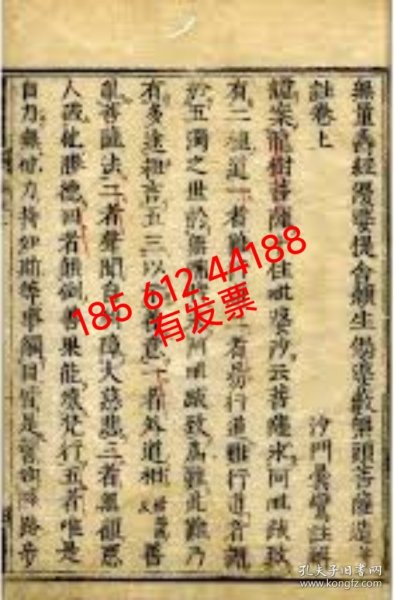 無量壽經優婆提舍願生偈婆藪槃頭菩薩造并
註卷上
沙門曇鸞註解
謹案龍樹菩薩 住毗婆沙云菩薩求阿毗跋致
有二種道一者 者易行道難行道者謂
於五濁之世於無佛 阿毗跋致為難此難乃
有多途粗言五三以 意一者外道相 善
亂菩薩法二者聲聞自 障大慈悲三者無顧惡
人破他勝德四者顛倒善果能壞梵行五者唯是
自力無他力持如斯等事觸目皆是譬如陸路步
185 612 44188
有发票
孔夫子旧书网
www.kongfz.com